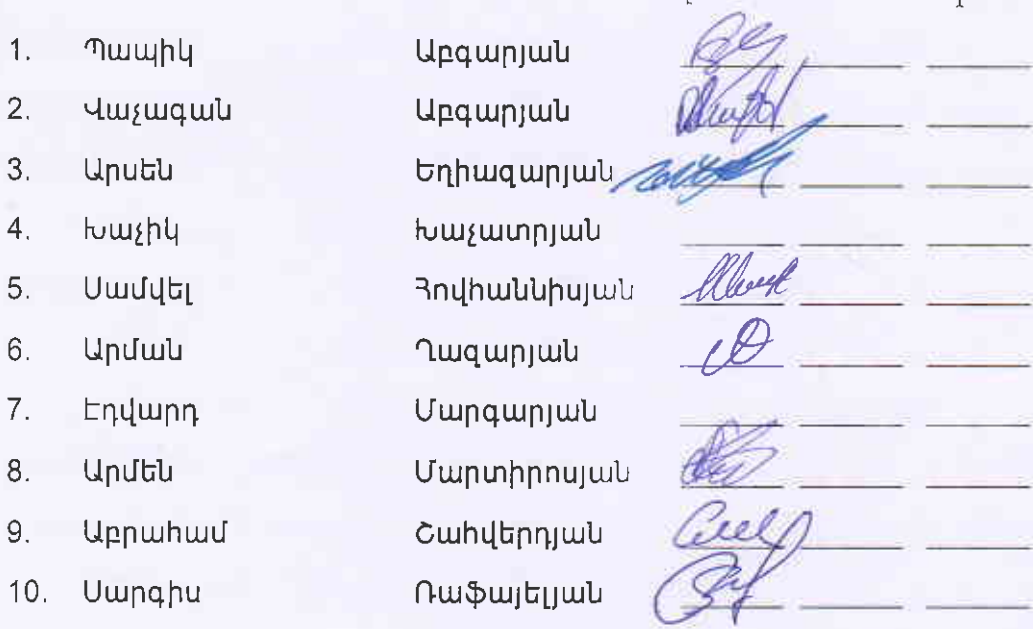 1. Պապիկ Աբգարյան
2. Վաչագան Աբգարյան
3. Արսեն Եղիազարյան
4. Խաչիկ Խաչատրյան
5. Սամվել Հովհաննիսյան
6. Արման Ղազարյան
7. Էդվարդ Մարգարյան
8. Արմեն Մարտիրոսյան
9. Աբրահամ Շահվերդյան
10. Սարգիս Ռաֆայելյան